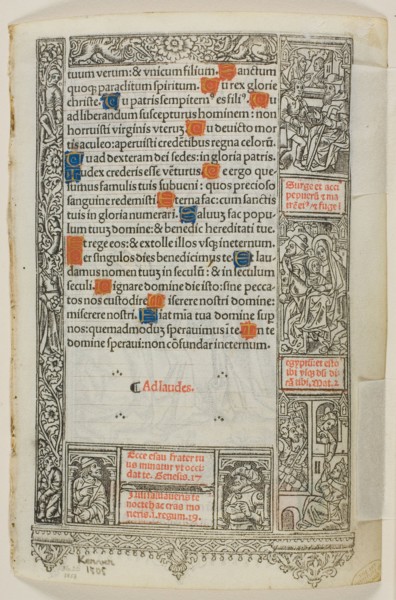 tuum verum: & vnicum filium. Sanctum
quoq; paraclitum spiritum. Tu rex glorie
christe. Tu patris sempitern⁹ es fili⁹. Tu
ad liberandum suscepturus hominem: non
horruisti virginis vterū. Tu deuicto mor
tis aculeo: aperuisti credētibus regna celorū.
Tu ad dexteram dei sedes: in gloria patris.
Iudex crederis esse vēturus. Te ergo que
sumus famulis tuis subueni: quos precioso
sanguine redemisti. Eterna fac: cum sanctis
tuis in gloria numerari. Saluuz fac popu
lum tuuz domine: & benedic hereditati tue.
Et rege eos: & extolle illos vsq; in eternum.
Per singulos dies benedicimus te. Et lau
damus nomen tuuz in seculū: & in seculum
seculi. Dignare domine die isto: sine pecca
to nos custodire. Miserere nostri domine:
miserere nostri. Fiat mīa tua domine sup
nos: quemadmoduz sperauimus i te. In te
domine speraui: non cōfundar in eternum.
Ad laudes.
Surge et acci
pe puerū & ma
trē ei⁹ & fuge ī
egyptū: et esto
ibi vsq; dū di
cā tibi. Mat. 2.
Ecce esau frater tu
us minatur vt occi
dat te. Genesis. 27
Nisi saluaueris te
nocte hac cras mo
rieris. 1. regum. 19.
Kerver
1505